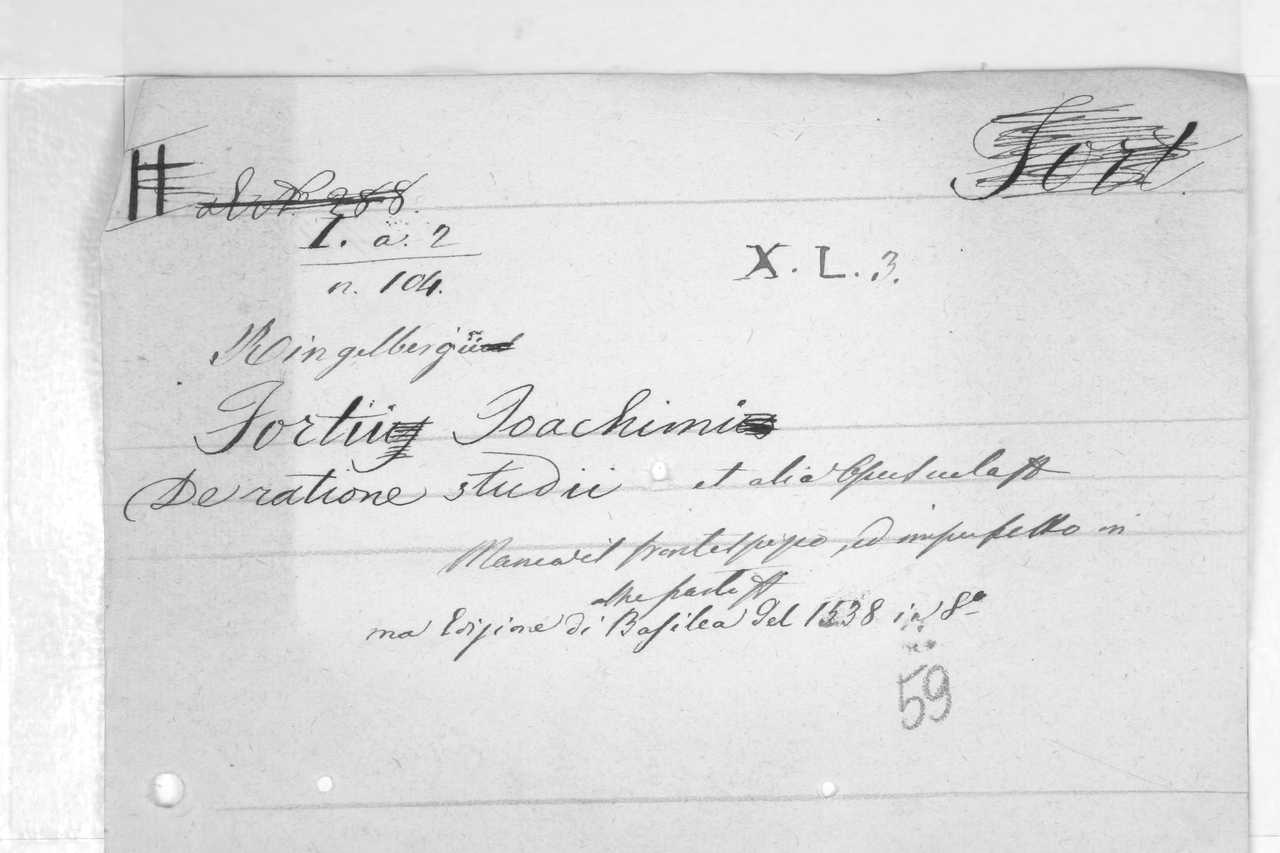 Fort
288.
I. a. 2
n. 104.
X. L. 3.
Ringelbergii
Fortii Joachimi
De ratione studii et alia Opuscula
Manca il frontespizio, ed imperfetto in
altre parti
ma Edizione di Basilea del 1538 in 8º
59